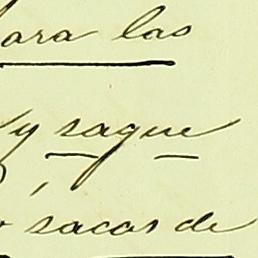 para las
y saque
sacas de